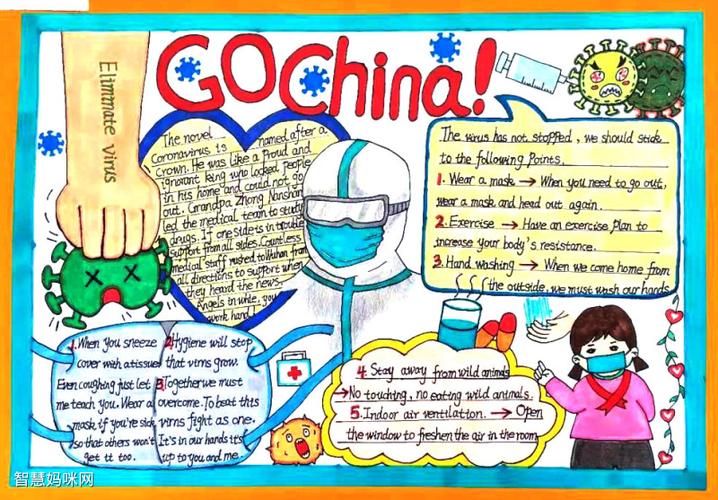 GO China!
Eliminate virus
The novel
Coronavirus is named after a
crown. He was like a Proud and
ignorant king who locked people
in his home and could not go
out. Grandpa Zhong Nanshan
led the medical team to study
drugs. If one side is in trouble
support from all sides. Countless
medical staff rushed to Wuhan from
all directions to support when
they heard the news.
Angels in white, you
work hand
The virus has not stopped, we should stick
to the following Points.
1. Wear a mask → When you need to go out,
wear a mask and head out again.
2. Exercise → Have an exercise Plan to
increase your body's resistance.
3. Hand washing → When we come home from
the outside, we must wash our hands
1. When you sneeze
cover with a tissue
Even coughing just let
me teach you. Wear a
mask if you're sick
so that others won't
get it too.
2. Hygiene will stop
that virns grow.
3. Together we must
overcome. To beat this
virns fight as one.
It's in our hands it's
up to you and me.
4. Stay away from wild animals
→ No touching, no eating wild animals.
5. Indoor air ventilation. → Open
the window to freshen the air in the room
智慧妈咪网